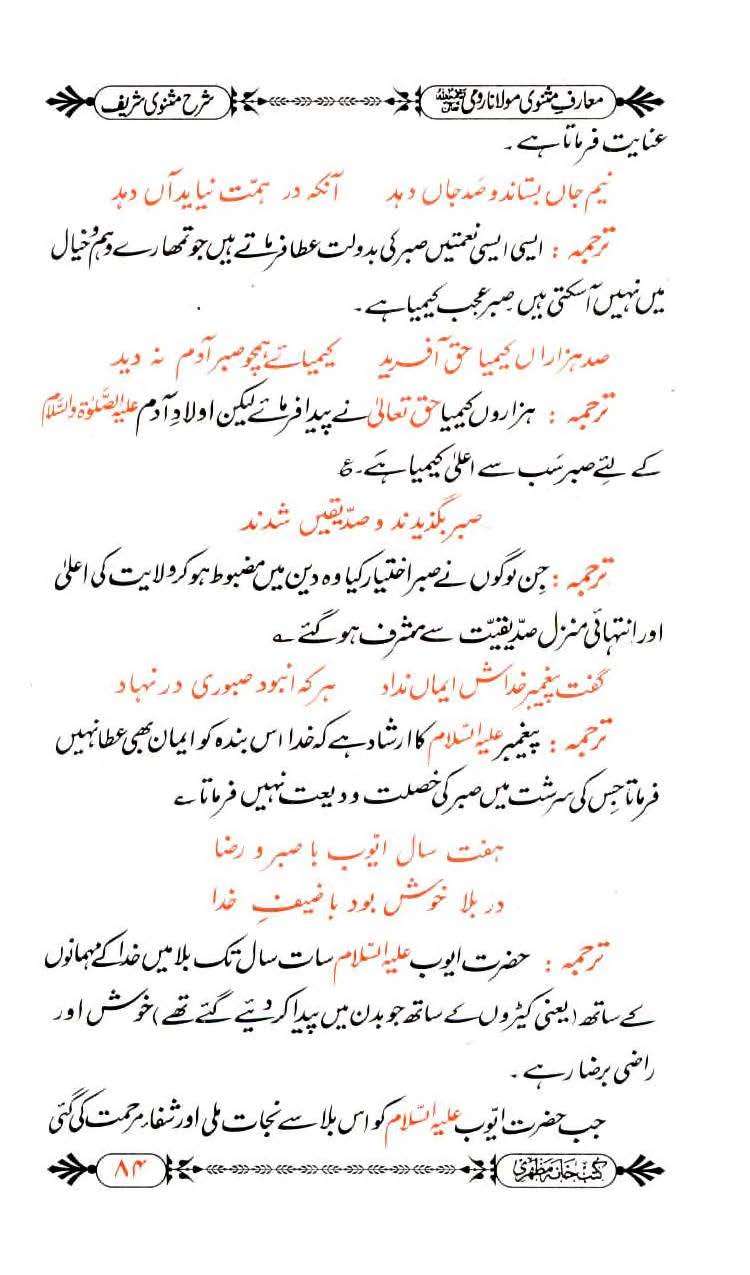 معارفِ مثنوی مولانا رومیؒ شرح مثنوی شریف
عنایت فرماتا ہے ۔
نیم جاں بستاند و صَد جاں دہد آنکہ در ہمّت نیاید آں دہد
ترجمہ : ایسی ایسی نعمتیں صبر کی بدولت عطا فرماتے ہیں جو تمھارے وہم و خیال
میں نہیں آسکتی ہیں صبر عجب کیمیا ہے ۔
صد ہزاراں کیمیا حق آفرید کیمیائے ہمچو صبر آدم نہ دید
ترجمہ : ہزاروں کیمیا حق تعالیٰ نے پیدا فرمائے لیکن اولادِ آدم علیہ الصَّلوٰۃ والسَّلام
کے لئے صبر سَب سے اعلیٰ کیمیا ہے ۔ ع
صبر بگزیدند و صدّیقیں شدند
ترجمہ : جِن لوگوں نے صبر اختیار کیا وہ دین میں مضبوط ہو کر ولایت کی اعلیٰ
اور انتہائی منزل صدّیقیّت سے مشرف ہو گئے ؎
گفت پیغمبر خداش ایماں نداد ہر کہ انبود صبوری در نہاد
ترجمہ : پیغمبر علیہ السّلام کا ارشاد ہے کہ خدا اس بندہ کو ایمان بھی عطا نہیں
فرماتا جِس کی سرشت میں صبر کی خصلت ودیعت نہیں فرماتا ؎
ہفت سال ایّوب با صبر و رضا
در بلا خوش بود با ضیفِ خدا
ترجمہ : حضرت ایوب علیہ السّلام سات سال تک بلا میں خدا کے مہمانوں
کے ساتھ (یعنی کیڑوں کے ساتھ جو بدن میں پیدا کر دئیے گئے تھے) خوش اور
راضی برضا رہے ۔
جب حضرت ایّوب علیہ السّلام کو اس بلا سے نجات ملی اور شفاء مرحمت کی گئی
کتب خانہ مظہری ۸۴